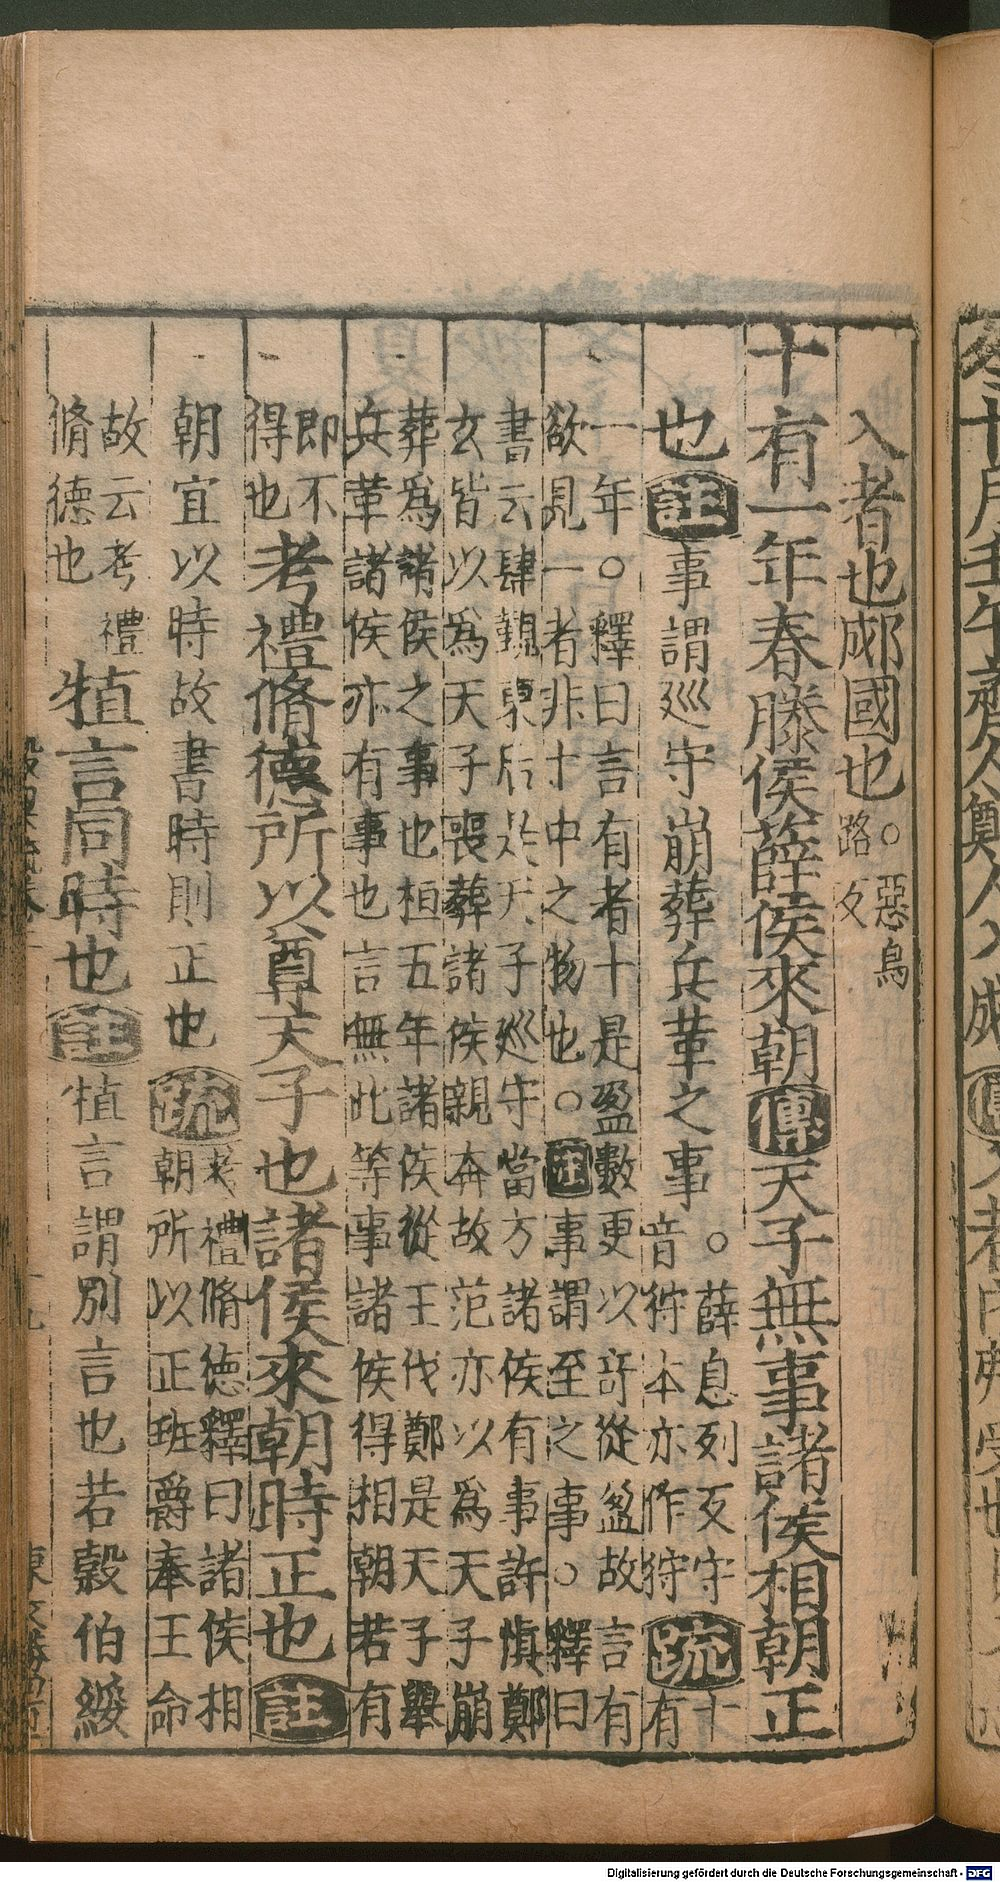 入者也郕國也。惡烏
路反
十有一年春滕侯薛侯來朝傳天子無事諸侯相朝正
也註事謂巡守崩葬兵革之事。薛息列反守
音狩本亦作狩疏十
有
一年。釋曰言有者十是盈數更以奇從盈故言有
欲見一者非十中之物也。註事謂至之事。釋曰
書云肆覲東后是天子巡守當方諸侯有事許慎鄭
玄皆以爲天子喪葬諸侯親奔故范亦以爲天子崩
葬爲諸侯之事也桓五年諸侯從王伐鄭是天子舉
兵革諸侯亦有事也言無此等事諸侯得相朝若有
即不
得也考禮脩德所以尊天子也諸侯來朝時正也註
朝宜以時故書時則正也疏考禮脩德釋曰諸侯相
朝所以正班爵奉王命
故云考禮
脩德也犆言同時也註犆言謂別言也若穀伯綏
Digitalisierung gefördert durch die Deutsche Forschungsgemeinschaft - DFG